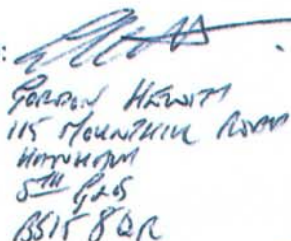 :
GORDON HEWITT
115 MOUNTHILL ROAD
HANHAM
BS15 8QR